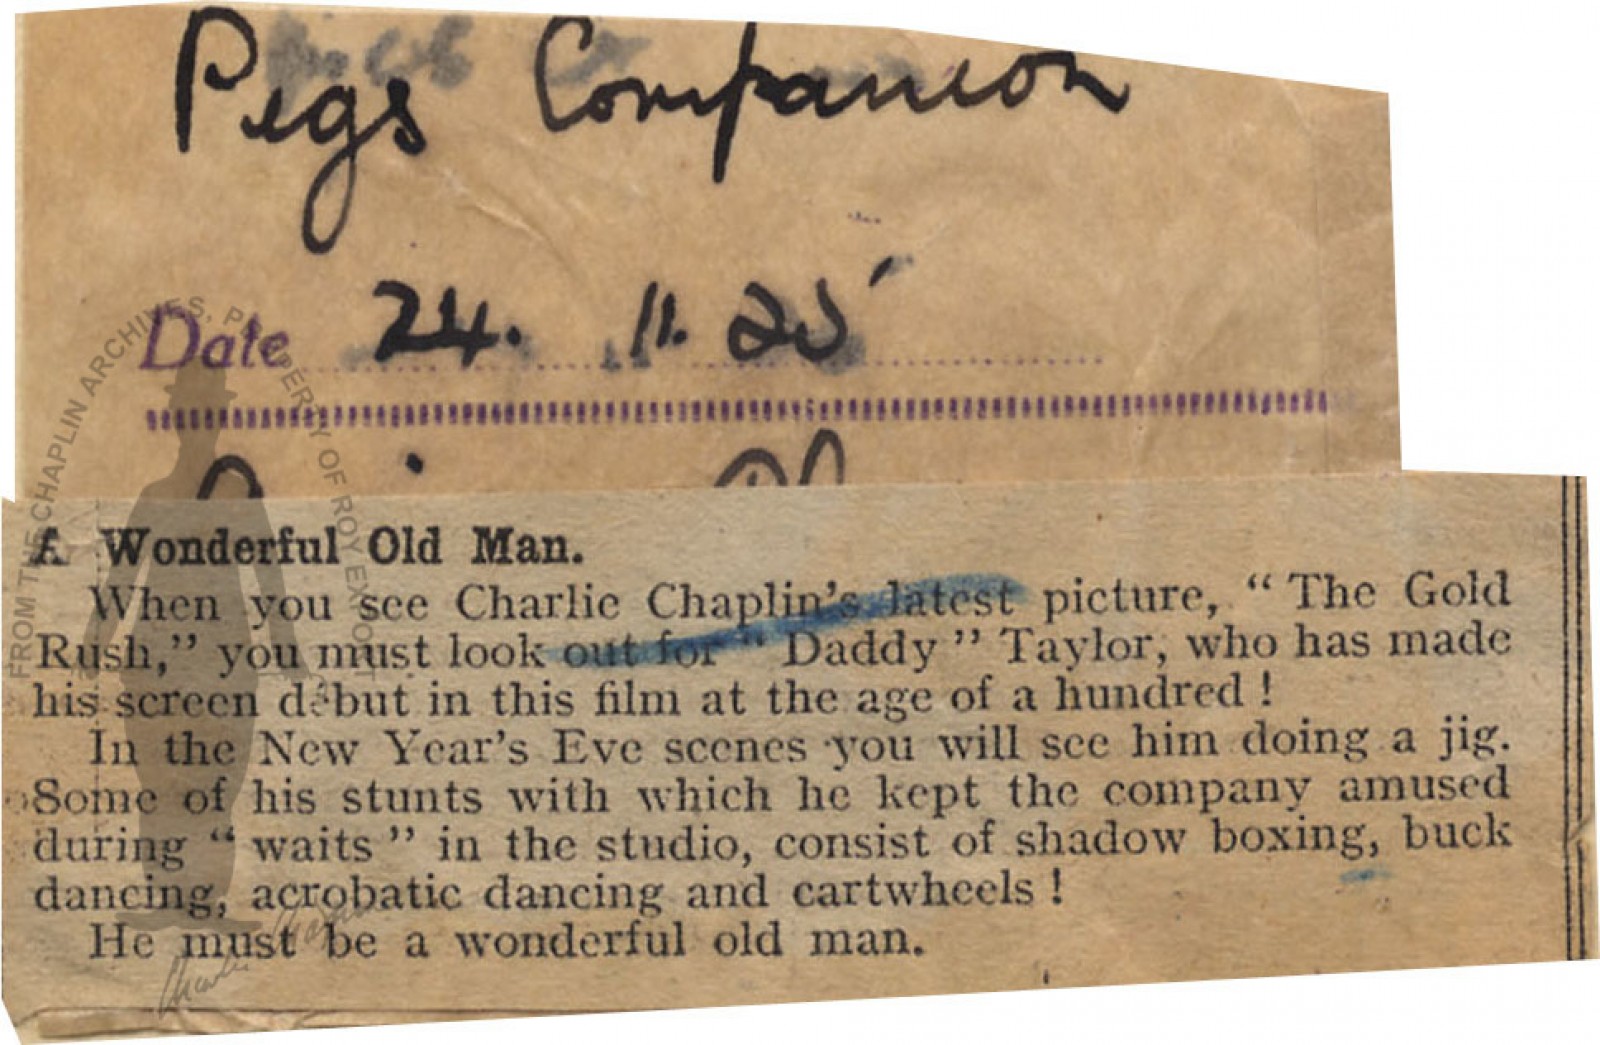 Pegs Companion
Date 24. 11. 25
A Wonderful Old Man.
When you see Charlie Chaplin's latest picture, “ The Gold
Rush,” you must look out for “ Daddy ” Taylor, who has made
his screen début in this film at the age of a hundred !
In the New Year's Eve scenes you will see him doing a jig.
Some of his stunts with which he kept the company amused
during “ waits ” in the studio, consist of shadow boxing, buck
dancing, acrobatic dancing and cartwheels !
He must be a wonderful old man.
FROM THE CHAPLIN ARCHIVES, PROPERTY OF ROY EXPORT
Charlie Chaplin